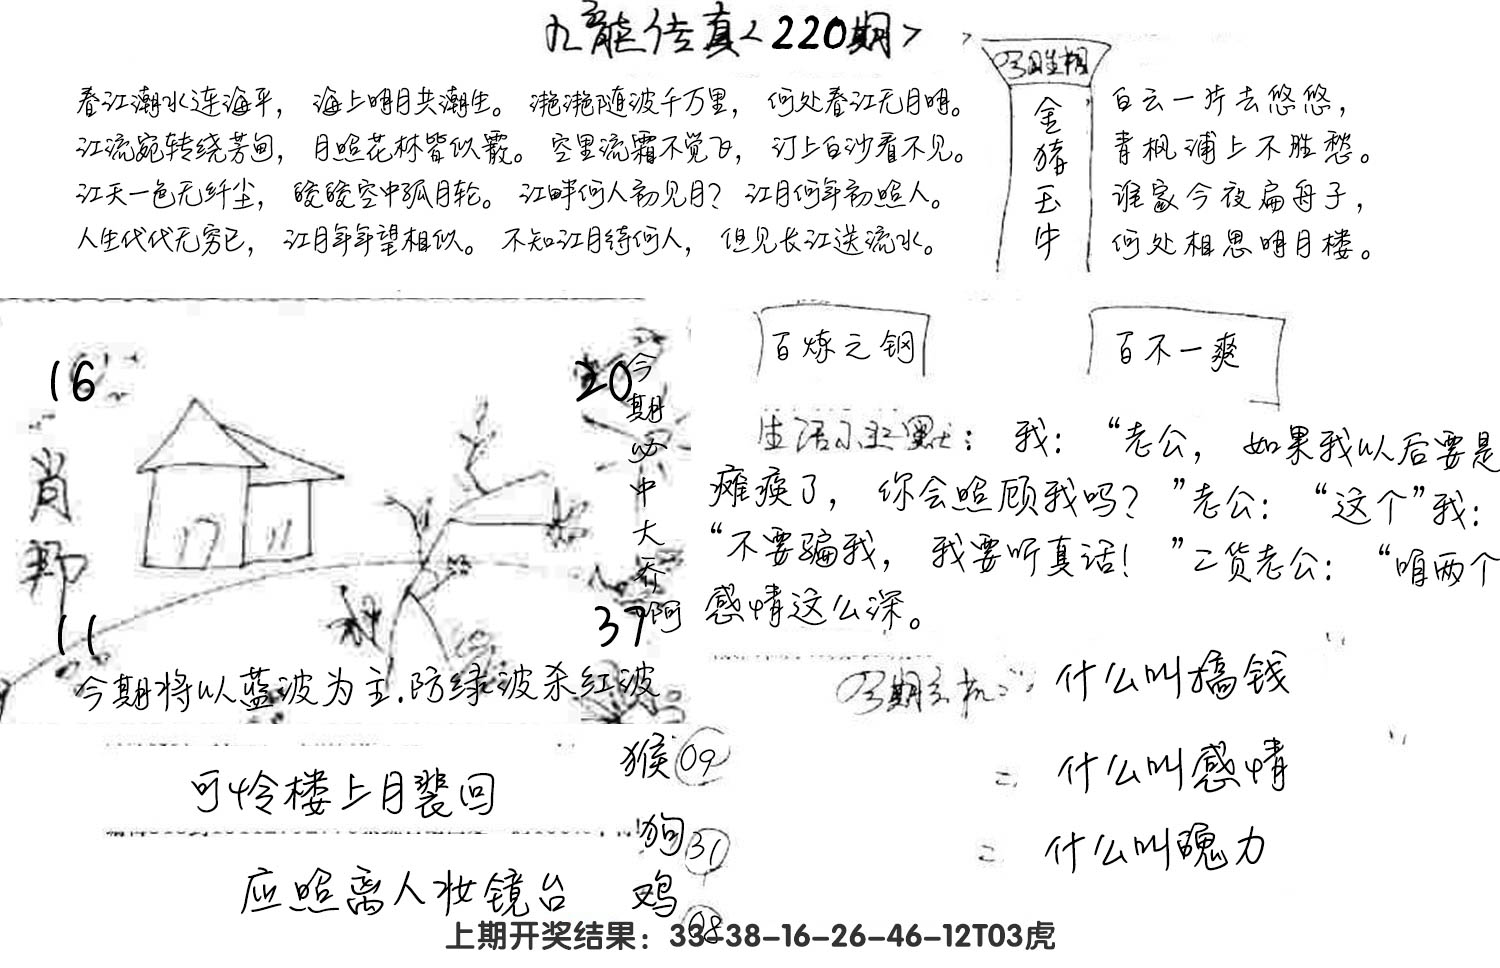 九龙传真<220期>
今期生相
金猪玉牛
春江潮水连海平，海上明月共潮生。滟滟随波千万里，何处春江无月明。
江流宛转绕芳甸，月照花林皆似霰。空里流霜不觉飞，汀上白沙看不见。
江天一色无纤尘，皎皎空中孤月轮。江畔何人初见月？江月何年初照人。
人生代代无穷已，江月年年望相似。不知江月待何人，但见长江送流水。
白云一片去悠悠，
青枫浦上不胜愁。
谁家今夜扁舟子，
何处相思明月楼。
16
20
肖
11
37
今期必中大乔啊
今期将以蓝波为主.防绿波杀红波
百炼之钢
百不一爽
生活小幽默：我：“老公，如果我以后要是
瘫痪了，你会照顾我吗？”老公：“这个”我：
“不要骗我，我要听真话！”二货老公：“咱两个
感情这么深。
今期玄机：什么叫搞钱
= 什么叫感情
= 什么叫魄力
可怜楼上月裴回
应照离人妆镜台
猴09
狗31
鸡08
上期开奖结果：33-38-16-26-46-12T03虎